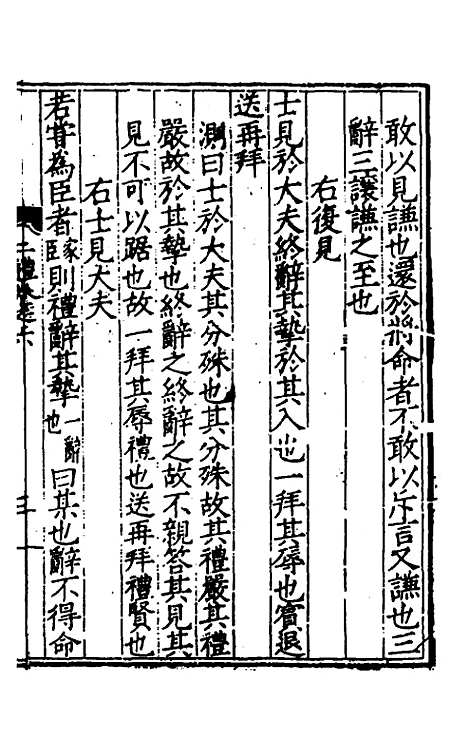 敢以見謙也還於將命者不敢以斥言又謙也三
辭三讓謙之至也
右復見
士見於大夫終辭其摯於其入也一拜其辱也賓退
送再拜
測曰士於大夫其分殊也其分殊故其禮嚴其禮
嚴故於其摯也終辭之終辭之故不親答其見其
見不可以踞也故一拜其辱禮也送再拜禮賢也
右士見大夫
若嘗為臣者家臣則禮辭其摯一辭也曰某也辭不得命
二禮